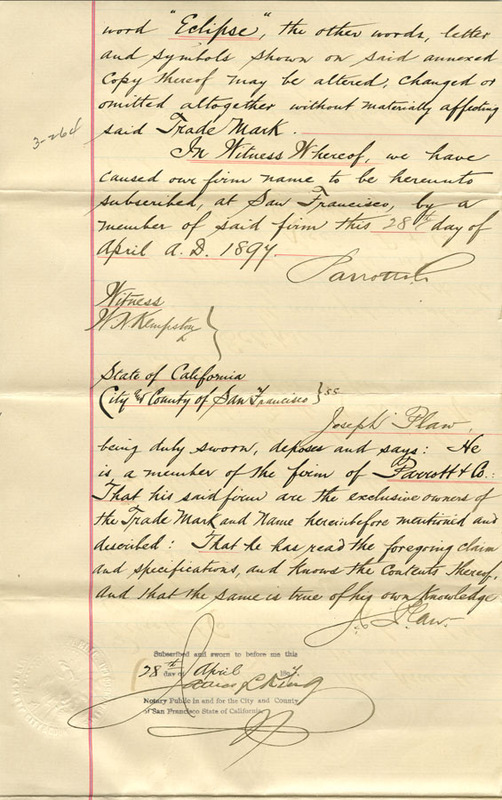 word "Eclipse", the other words, letter
and symbols shown on said annexed
Copy thereof may be altered, changed or
omitted altogether without materially affecting
said Trade Mark.
3-264
In Witness Whereof, we have
caused our firm name to be hereunto
subscribed, at San Francisco, by a
member of said firm this 28th day of
April A.D. 1897.
Parrott & Co
Witness
W. Kempston
State of California
City & County of San Francisco } ss
Joseph Plaw,
being duly sworn, deposes and says: He
is a member of the firm of Parrott & Co.:
That his said firm are the exclusive owners of
the Trade Mark and Name hereinbefore mentioned and
described: That he has read the foregoing claim
and specifications, and knows the Contents thereof,
and that the same is true of his own knowledge
J. Plaw
Subscribed and sworn to before me this
28th day of April 1897.
James L. King
Notary Public in and for the City and County
of San Francisco State of California.